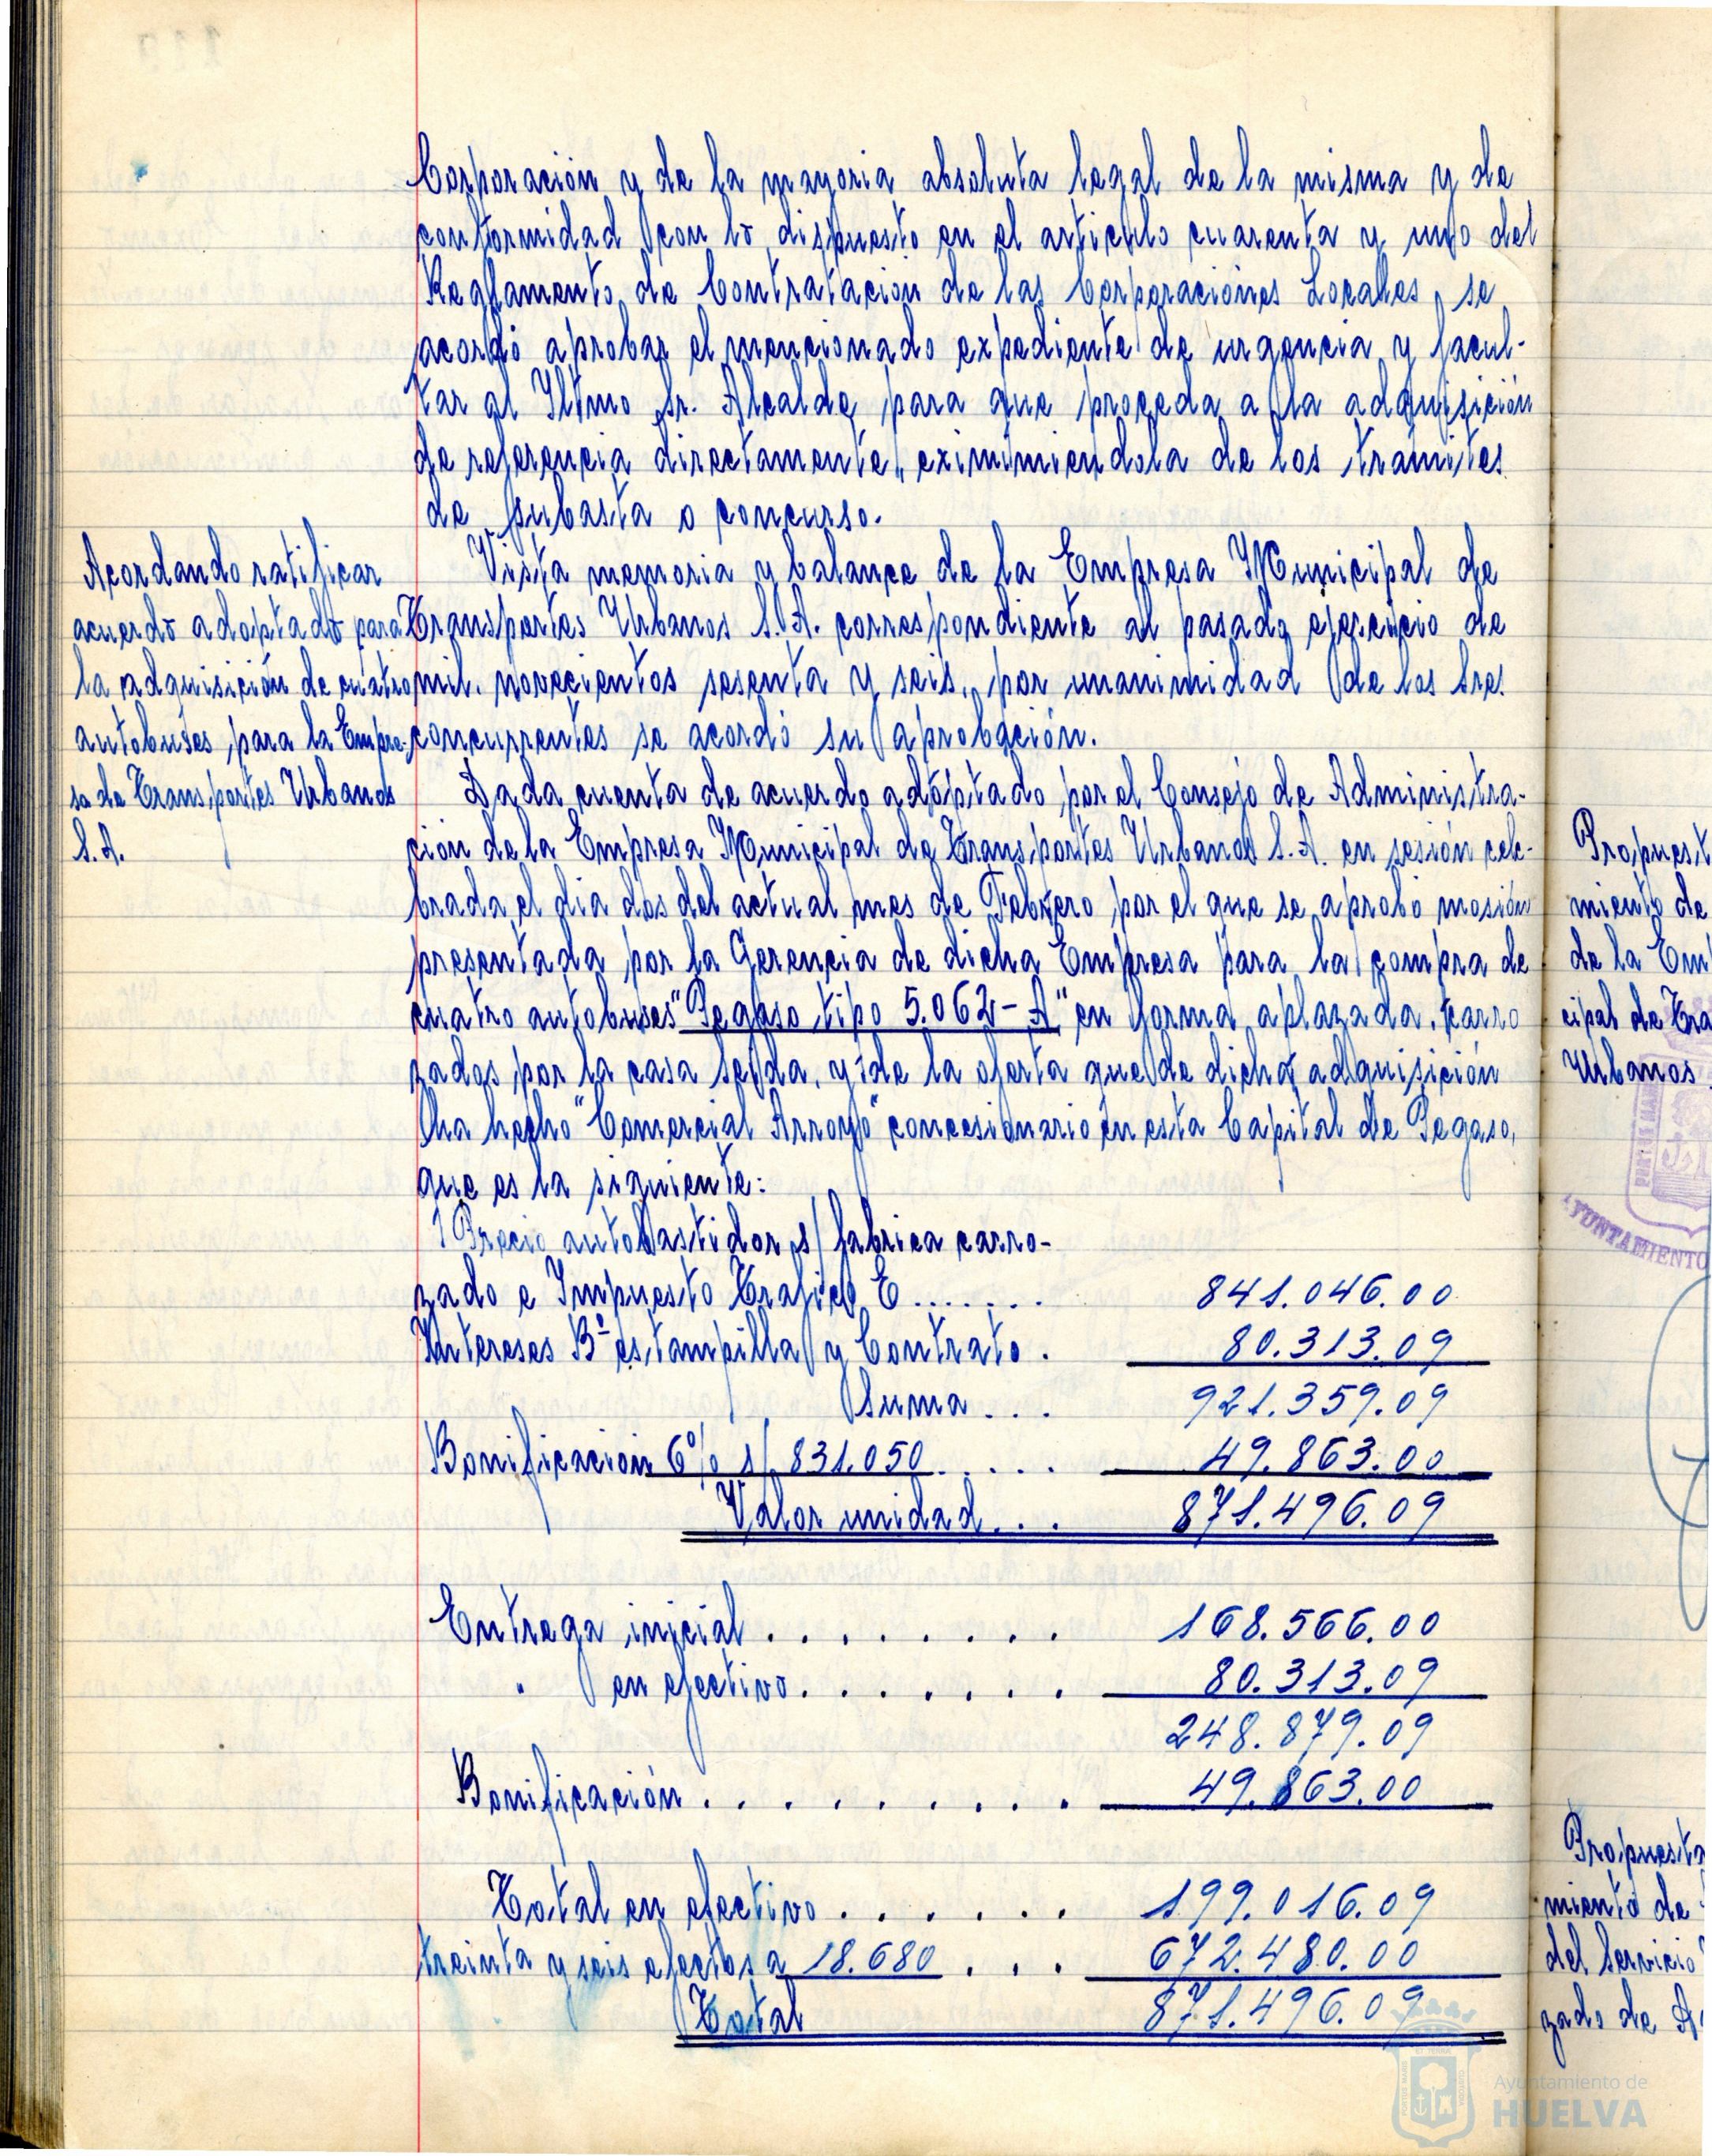 Corporación y de la mayoria absoluta legal de la misma y de
conformidad con lo dispuesto en el articulo cuarenta y uno del
Reglamento de Contratación de las Corporaciones Locales, se
acordó aprobar el mencionado expediente de urgencia y facul-
tar al Iltmo Sr. Alcalde para que proceda a la adquisición
de referencia directamente, eximimiendola de los trámites
de subasta o concurso.
Acordando ratificar
acuerdo adoptado para
la adquisición de cuatro
autobuses para la Empre-
sa de Transportes Urbanos
S.A.
Vista memoria y balance de la Empresa Municipal de
Transportes Urbanos S.A. correspondiente al pasado ejercicio de
mil novecientos sesenta y seis, por unanimidad de los Sres.
concurrentes se acordó su aprobación.
Dada cuenta de acuerdo adoptado por el Consejo de Administra-
ción de la Empresa Municipal de Transportes Urbanos S.A. en sesión cele-
brada el dia dos del actual mes de Febrero por el que se aprobó mosión
presentada por la Gerencia de dicha Empresa para la compra de
cuatro autobuses "Pegaso tipo 5.062-A" en forma aplazada, carro
zados por la casa Seida, y de la oferta que de dicha adquisición
ha hecho "Comercial Arroyo" concesionario en esta Capital de Pegaso,
que es la siguiente:
1 Precio autobastidor s/ fabrica carro-
zado e Impuesto Trafico E....... 841.046.00
Intereses Bº estampilla y Contrato . 80.313.09
Suma ... 921.359.09
Bonificación 6% s/ 831.050 ..... 49.863.00
Valor unidad ... 871.496.09
Entrega inicial ........ 168.566.00
" en efectivo ....... 80.313.09
248.879.09
Bonificación ......... 49.863.00
Total en efectivo ...... 199.016.09
treinta y seis efectos a 18.680 ... 672.480.00
Total 871.496.09
Propuest
miento de
de la Em
cipal de Tra
Urbanos
AYUNTAMIENTO
Propuesta
miento de
del Servicio
zado de A
Ayuntamiento de
HUELVA